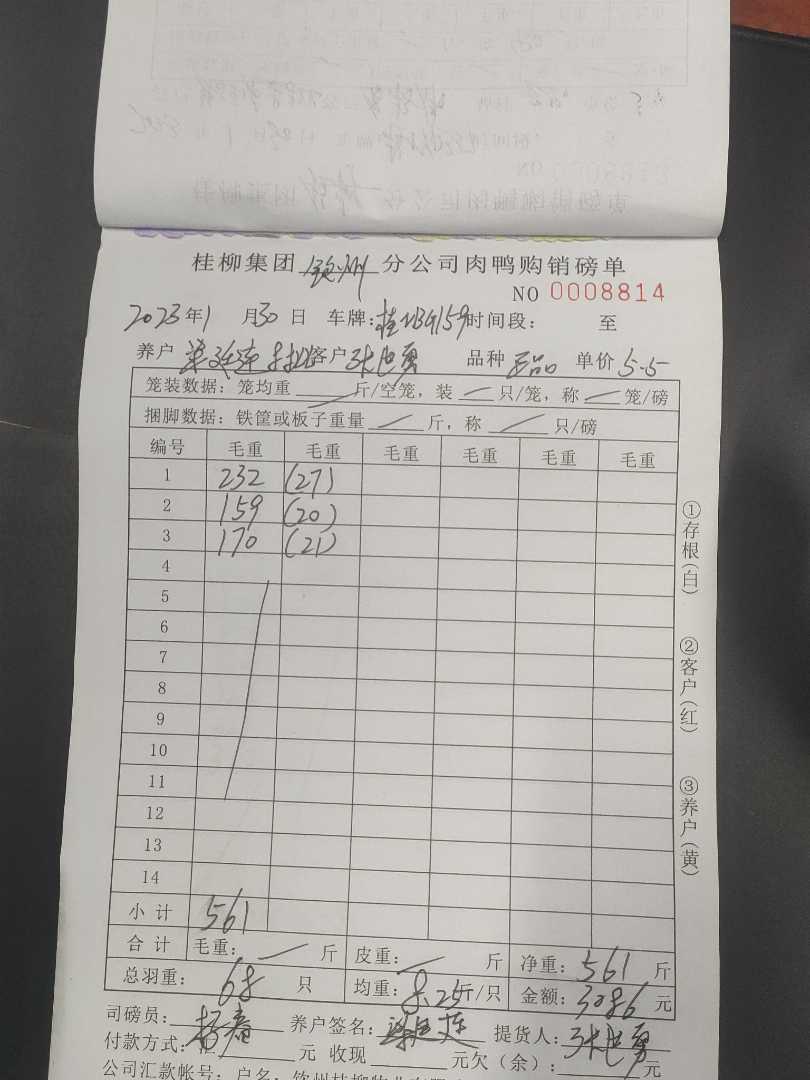 桂柳集团 钦州 分公司肉鸭购销磅单
NO 0008814
2023年1月30日 车牌: 时间段: 至
养户 客户 张也勇 品种 单价 5.5
笼装数据: 笼均重 斤/空笼, 装 只/笼, 称 笼/磅
捆脚数据: 铁筐或板子重量 斤, 称 只/磅
编号 毛重 毛重 毛重 毛重 毛重 毛重
1 232 (27)
2 159 (20)
3 170 (21)
4
5
6
7
8
9
10
11
12
13
14
小计 561
合计 毛重: 斤 皮重: 斤 净重: 561 斤
总羽重: 68 只 均重: 8.25斤/只 金额: 3086 元
司磅员: 杨鑫 养户签名: 提货人: 张也勇
付款方式: 元 收现 元欠(余): 元
公司汇款帐号: 户名: 钦州桂柳牧业有限
①存根(白)
②客户(红)
③养户(黄)